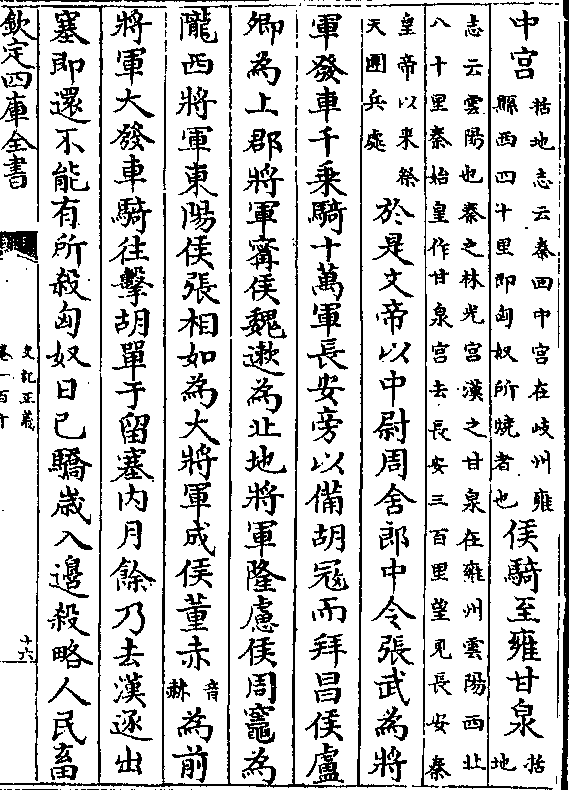 中宮括地志云秦囬中宮在岐州雍縣西四十里即匈奴所燒者也侯騎至雍甘泉括地
志云雲陽也秦之林光宮漢之甘泉在雍州雲陽西北八十里秦始皇作甘泉宮去長安三百里望見長安秦
皇帝以来祭天圜兵處於是文帝以中尉周舍郎中令張武為將
軍發車千乗騎十萬軍長安旁以備胡冦而拜昌侯盧
卿為上郡將軍甯侯魏遬為北地將軍隆慮侯周竈為
隴西將軍東陽侯張相如為大將軍成侯董赤音赫為前
將軍大發車騎徃擊胡單于留塞内月餘乃去漢逐出
塞即還不能有所殺匈奴日已驕歳入邊殺略人民畜
欽定四庫全書
史記正義
卷一百十
十六